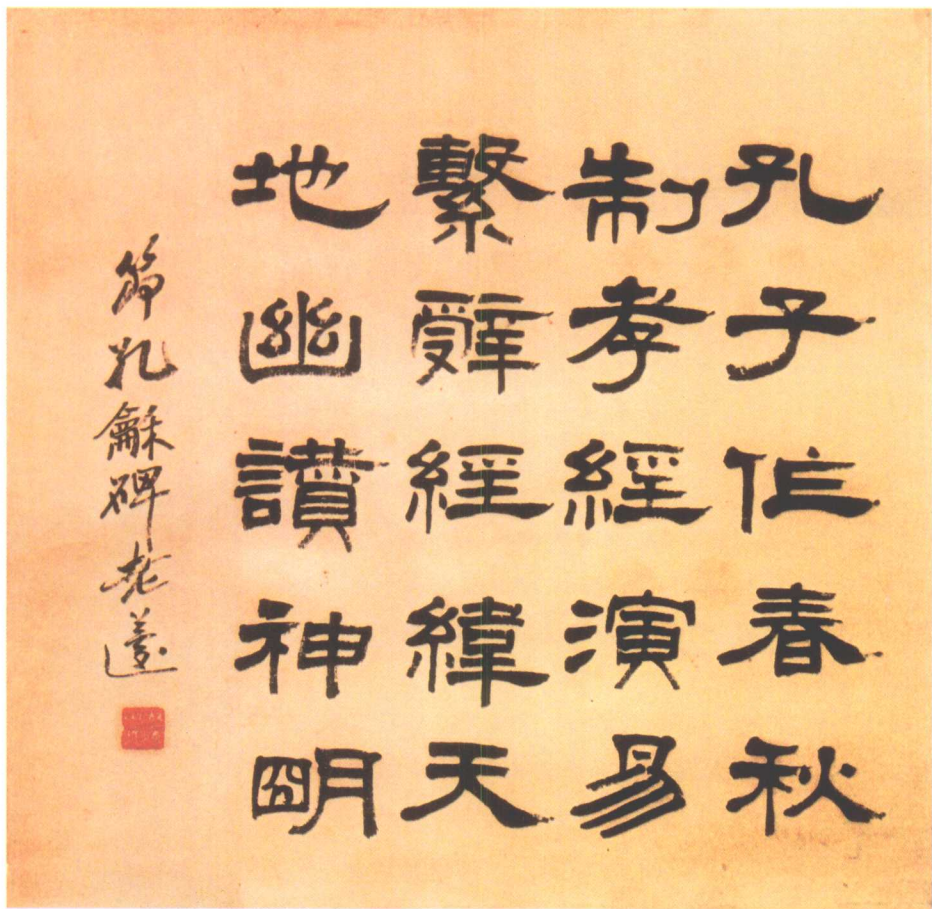 孔子作春秋
制孝經演易
繫辭經緯天
地幽讚神明
節孔龢碑老薳